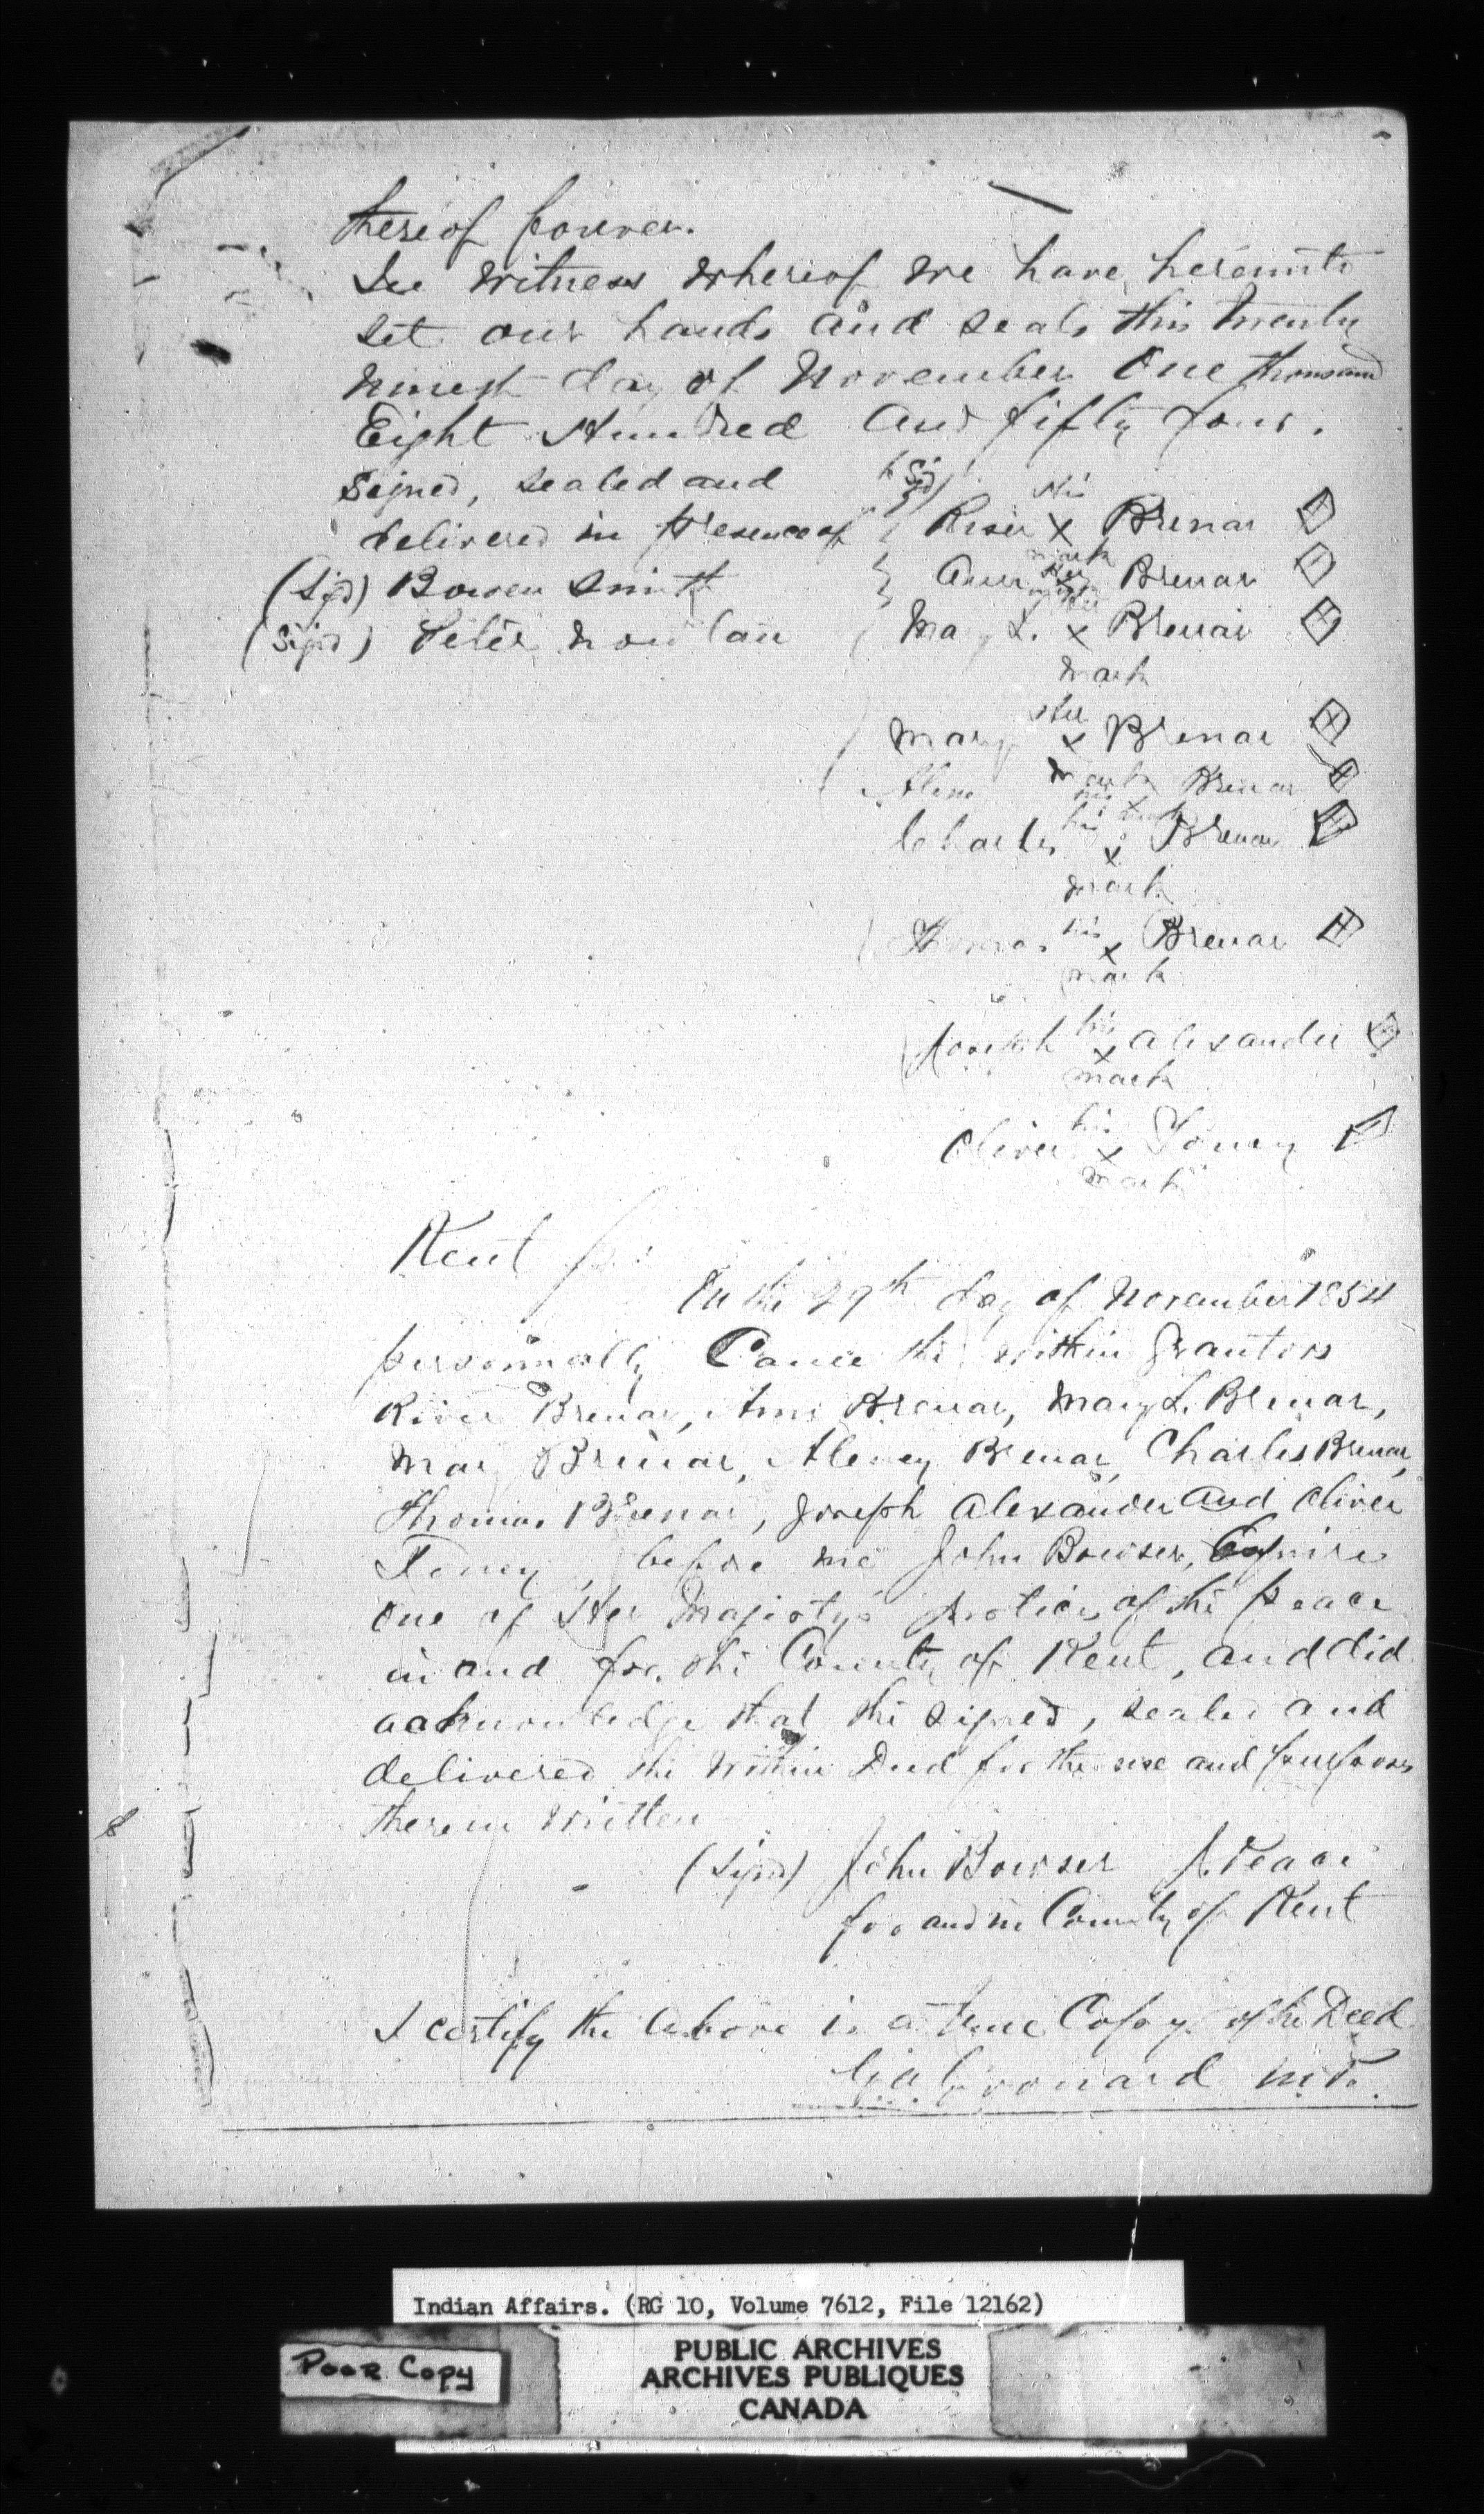 thereof forever.
In witness whereof we have hereunto
set our hands and seals this twenty
ninest day of November One thousand
Eight Hundred and fifty four.
signed, sealed and
delivered in presence of
(sigd) Bowen Smith
(sigd) Peter
(Sigd)
his
x Brenar
mark
her
Ann x Brenar
mark
her
Mary L. x Brenar
mark
Her
Mary x Brenar
mark
Brenar
his
Charles x Brenar
mark
Thomas his x Brenar
mark
Joseph his x Alexander
mark
Oliver his x
mark
Kent
On the 29th day of November 1854
personnally Came the within Grantors
Brenar, Ann Brenar, Mary L. Brenar,
Mary Brenar, Brenar, Charles Brenar,
Thomas Brenar, Joseph Alexander and Oliver
before me John Bowser, Esquire
One of Her Majesty's Justices of the peace
in and for the County of Kent, and did
acknowledge that the signed, sealed and
delivered the within Deed for the use and purposes
therein written
(sigd) John Bowser J. Peace
for and in County of Kent
I certify the above is a true Copy of the Deed
Indian Affairs. (RG 10, Volume 7612, File 12162)
PUBLIC ARCHIVES
ARCHIVES PUBLIQUES
CANADA
Poor Copy